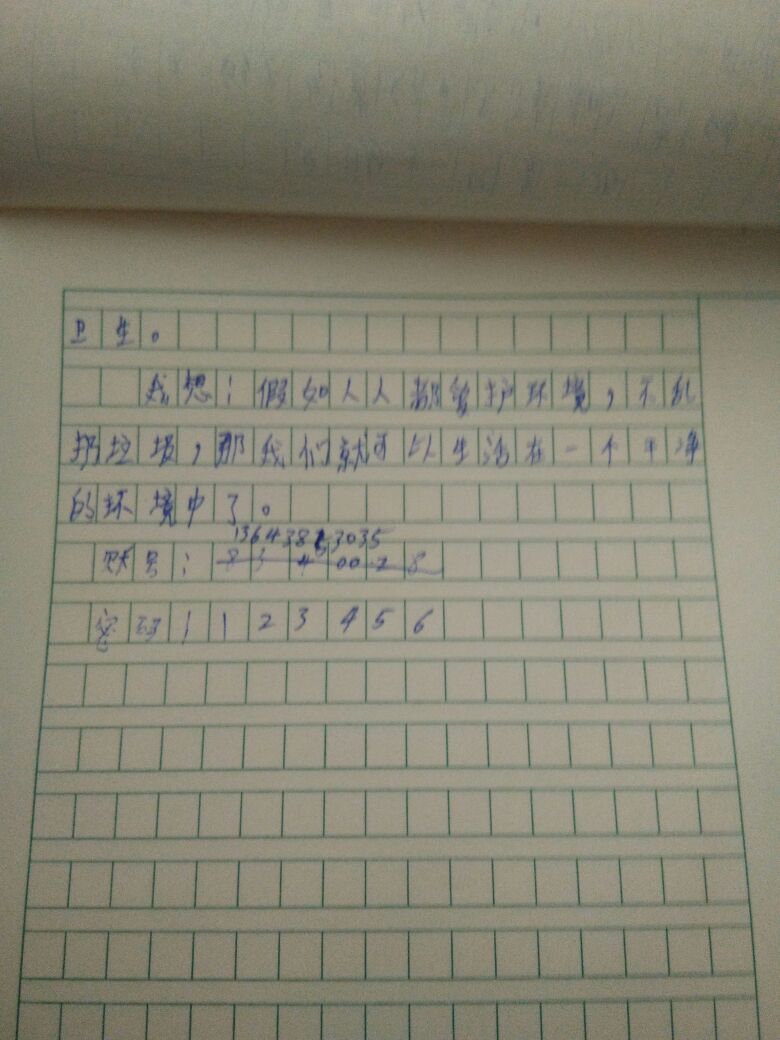 卫生。
我想：假如人人都爱护环境，不乱
扔垃圾，那我们就可以生活在一个干净
的环境中了。
账号：
密码：123456